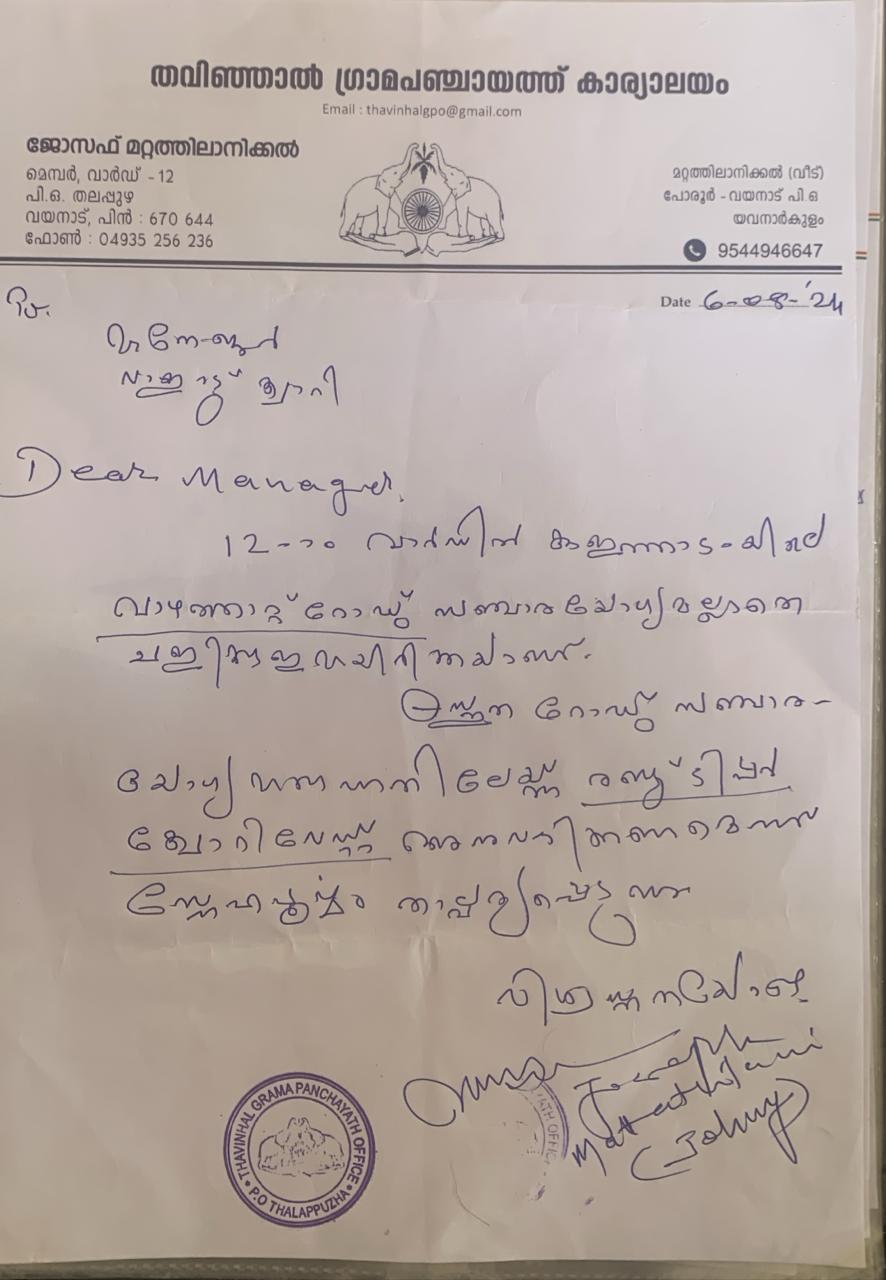 തവിഞ്ഞാൽ ഗ്രാമപഞ്ചായത്ത് കാര്യാലയം
Email : thavinhalgpo@gmail.com
ജോസഫ് മറ്റത്തിലാനിക്കൽ
മെമ്പർ, വാർഡ് -12
പി.ഒ. തലപ്പുഴ
വയനാട്, പിൻ : 670 644
ഫോൺ : 04935 256 236
മറ്റത്തിലാനിക്കൽ (വീട്)
പോരൂർ - വയനാട് പി.ഒ
യവനാർകുളം
9544946647
Date 6-08-'24
To.
മാനേജർ
ക്വാറി
Dear Manager,
12-ാം വാർഡിൽ
വാഴത്താറ്റ് റോഡ് സഞ്ചാരയോഗ്യമല്ലാതെ
റോഡ് സഞ്ചാര-
യോഗ്യ രണ്ട് ടിപ്പർ
ക്വോറിവേസ്റ്റ് അനുവദിക്കണമെന്ന്
സ്നേഹപൂർവ്വം താല്പര്യപ്പെടുന്നു
വിശ്വസ്തതയോടെ
Joseph
(Johny)
THAVINHAL GRAMA PANCHAYATH OFFICE
P.O THALAPPUZHA